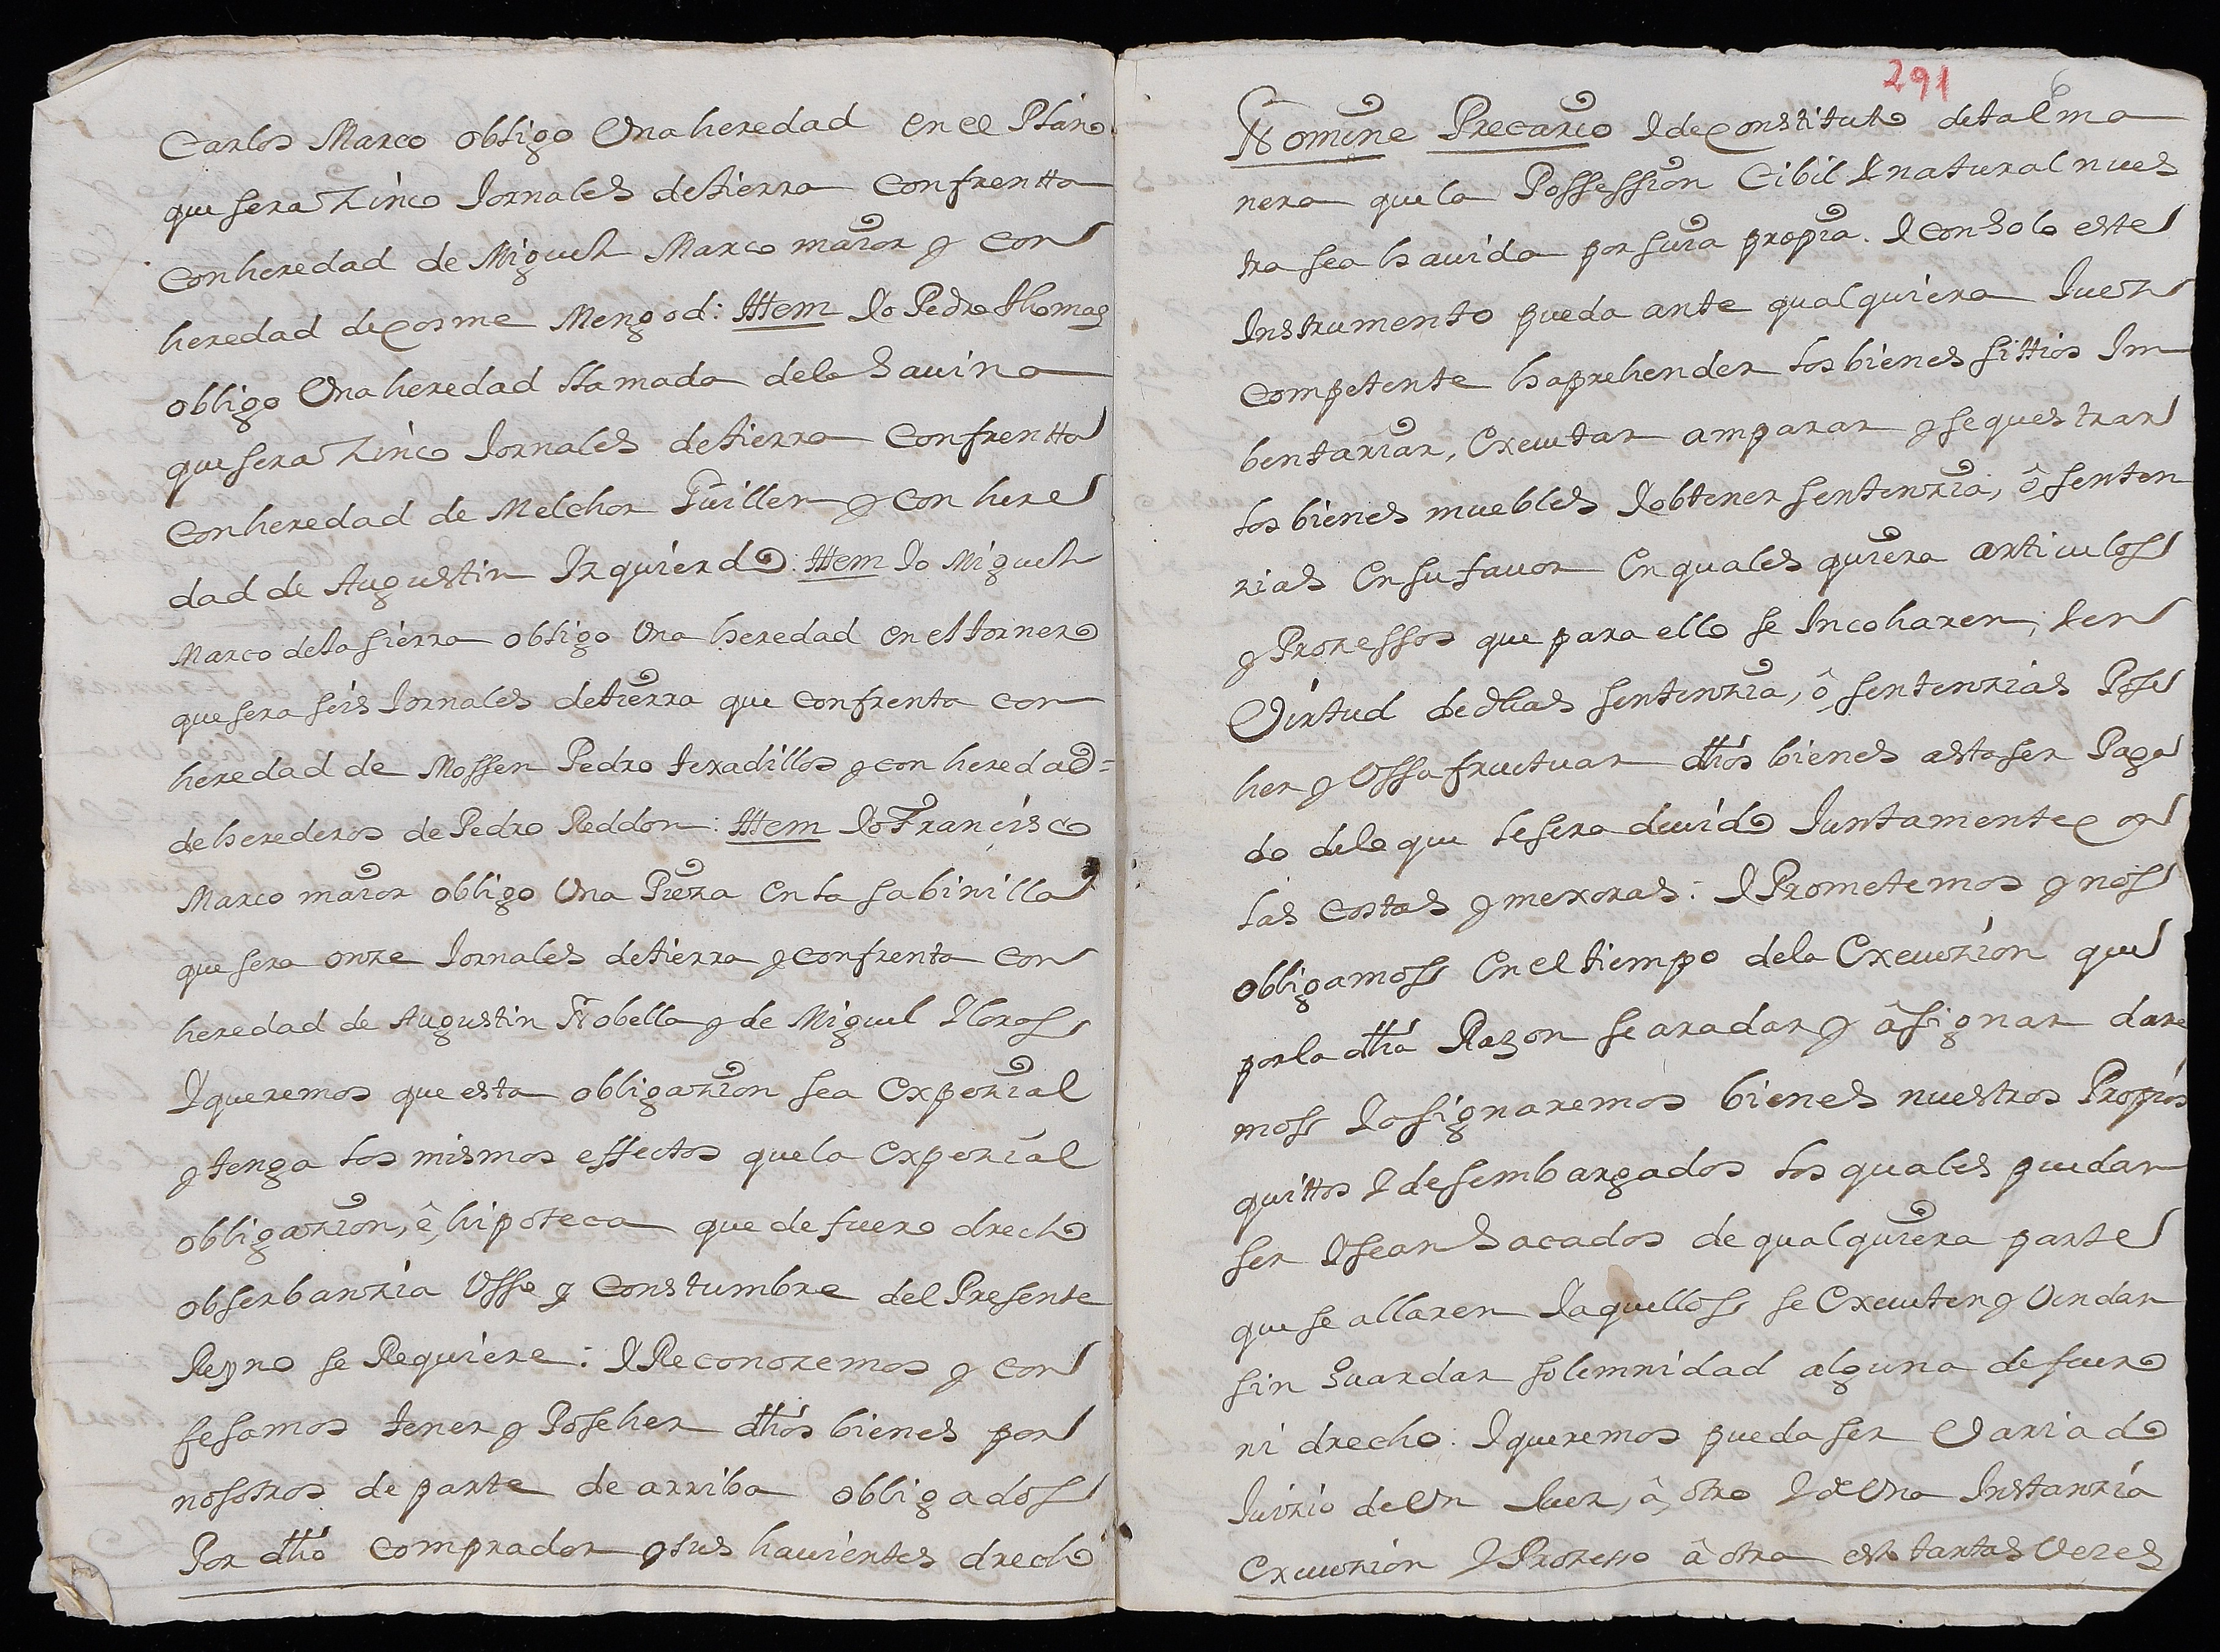 Carlos Marco obligo Una heredad en el Plano
que sera zinco Jornales de tierra Confrentta
Con heredad de Miguel Marco maior y con
heredad de Cosme Mengod: Ittem Yo Pedro thomas
obligo Una heredad llamada de la Savina
que sera zinco Jornales de tierra Confrentta
Con heredad de Melchor Guillen y con here
dad de Augustin Izquierdo: Ittem Yo Miguel
Marco de la sierra obligo Una heredad en el tornero
que sera seis Jornales de tierra que confrenta con
heredad de Mossen Pedro texadillos y con heredad=
de herederos de Pedro Reddon: Ittem Yo Francisco
Marco maior obligo Una Pieza en la sabinilla
que sera onze Jornales de tierra y confrenta con
heredad de Augustin Nobella y de Miguel Lloros
Y queremos que esta obligazion sea Expezial
y tenga los mismos effectos que la Expezial
obligazion, ê, hipoteca que de fuero drecho
obserbanzia Usso y Constumbre del Presente
Reyno se Requiere: Y Reconozemos y con
fesamos tener y Poseher dhos bienes por
nosotros de parte de arriba obligados
Por dho Comprador y sus havientes drecho
291
Nomine Precario Y de Constituto de tal ma
nera que la Possession Cibil Y natural nues
tra sea havida por suia propia. Y con solo este
Instrumento pueda ante qualquiera Juez
Competente haprehender los bienes sittios Im
bentariar, Executar amparar y sequestrar
los bienes muebles Y obtener sentenzia, ô, senten
zias En su favor En quales quiera articulos
y Prozessos que para ello se Incoharen, Y en
Virtud de dhas sentenzia, ô, sentenzias Pose
her y Ussofructuar dhos bienes asta ser Paga
do de lo que le sera devido Juntamente con
las costas y mexoras: Y Prometemos y nos
obligamos En el tiempo de la Execuzion que
por la dha Razon se ara dar y âsignar dare
mos Y asignaremos bienes nuestros Propios
quittos Y desembargados los quales puedan
ser Y sean Sacados de qualquiera parte
que se allaren Y aquellos se Executen y Vendan
sin Guardar solemnidad alguna de fuero
ni drecho: Y queremos pueda ser Variado
Juizio de Un Juez, â, otro Y de Una Instanzia
Execuzion Y Prozesso â otra esto tantas Vezes